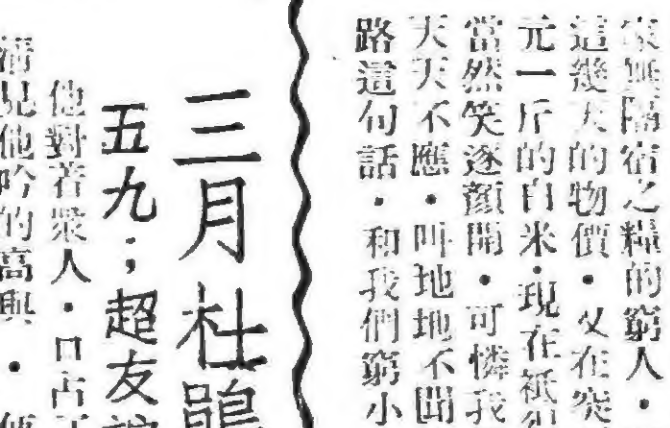 家無隔宿之糧的窮人・
這幾天的物價・又在突
元一斤的白米・現在祇
當然笑逐顏開・可憐我
天天不應・叫地地不聞
路這句話・和我們窮小
三月杜鵑
五九；超友
他對若衆人・口占
他吟的高興・